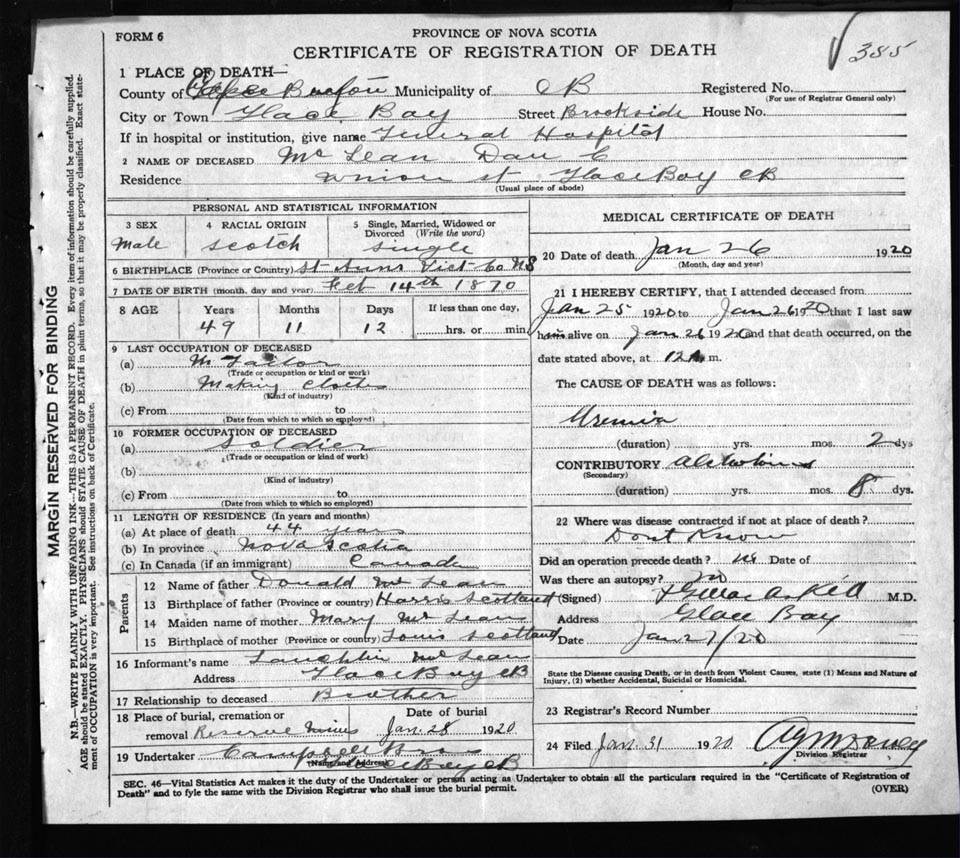 385
FORM 6
PROVINCE OF NOVA SCOTIA
CERTIFICATE OF REGISTRATION OF DEATH
1 PLACE OF DEATH—
County of Cape Breton Municipality of CB Registered No.
(For use of Registrar General only)
City or Town Glace Bay Street Brookside House No.
If in hospital or institution, give name General Hospital
2 NAME OF DECEASED Mc Lean Dan C
Residence Union st Glace Bay CB
(Usual place of abode)
PERSONAL AND STATISTICAL INFORMATION
3 SEX Male
4 RACIAL ORIGIN Scotch
5 Single, Married, Widowed or Divorced (Write the word) Single
6 BIRTHPLACE (Province or Country) St Anns Vict Co NS
7 DATE OF BIRTH (month, day and year) Feb 14th 1870
8 AGE Years Months Days If less than one day,
49 11 12 hrs. or min.
9 LAST OCCUPATION OF DECEASED
(a) M Tailor
(Trade or occupation or kind of work)
(b) Making Clothes
(Kind of industry)
(c) From to
(Date from which to which so employed)
10 FORMER OCCUPATION OF DECEASED
(a) Soldier
(Trade or occupation or kind of work)
(b)
(Kind of industry)
(c) From to
(Date from which to which so employed)
11 LENGTH OF RESIDENCE (In years and months)
(a) At place of death 44 years
(b) In province Nova Scotia
(c) In Canada (if an immigrant) Canada
Parents
12 Name of father Donald Mc Lean
13 Birthplace of father (Province or country) Harris Scotland
14 Maiden name of mother Mary Mc Lean
15 Birthplace of mother (Province or country) Scotland
16 Informant's name Lauchlin Mc Lean
Address Glace Bay CB
17 Relationship to deceased Brother
18 Place of burial, cremation or removal Reserve Mines
Date of burial Jan. 28 1920
19 Undertaker Campbell Bros
(Name and Address) Glace Bay CB
MEDICAL CERTIFICATE OF DEATH
20 Date of death Jan 26 1920
(Month, day and year)
21 I HEREBY CERTIFY, that I attended deceased from
Jan 25 1920 to Jan 26 1920 that I last saw
him alive on Jan 26 1920 and that death occurred, on the
date stated above, at 12 m.
The CAUSE OF DEATH was as follows:
Uremia
(duration) yrs. mos. 2 dys
CONTRIBUTORY
(Secondary)
(duration) yrs. mos. 8 dys.
22 Where was disease contracted if not at place of death?
Dont Know
Did an operation precede death? no Date of
Was there an autopsy? no
(Signed) M.D.
Address Glace Bay
Date Jan 27/20
State the Disease causing Death, or in death from Violent Causes, state (1) Means and Nature of
Injury, (2) whether Accidental, Suicidal or Homicidal.
23 Registrar's Record Number
24 Filed Jan. 31 1920
Division Registrar
SEC. 46—Vital Statistics Act makes it the duty of the Undertaker or person acting as Undertaker to obtain all the particulars required in the "Certificate of Registration of
Death" and to fyle the same with the Division Registrar who shall issue the burial permit.
(OVER)
MARGIN RESERVED FOR BINDING
N.B.—WRITE PLAINLY WITH UNFADING INK—THIS IS A PERMANENT RECORD. Every item of information should be carefully supplied.
AGE should be stated EXACTLY. PHYSICIANS should STATE CAUSE OF DEATH in plain terms, so that it may be properly classified. Exact state-
ment of OCCUPATION is very important. See instructions on back of Certificate.